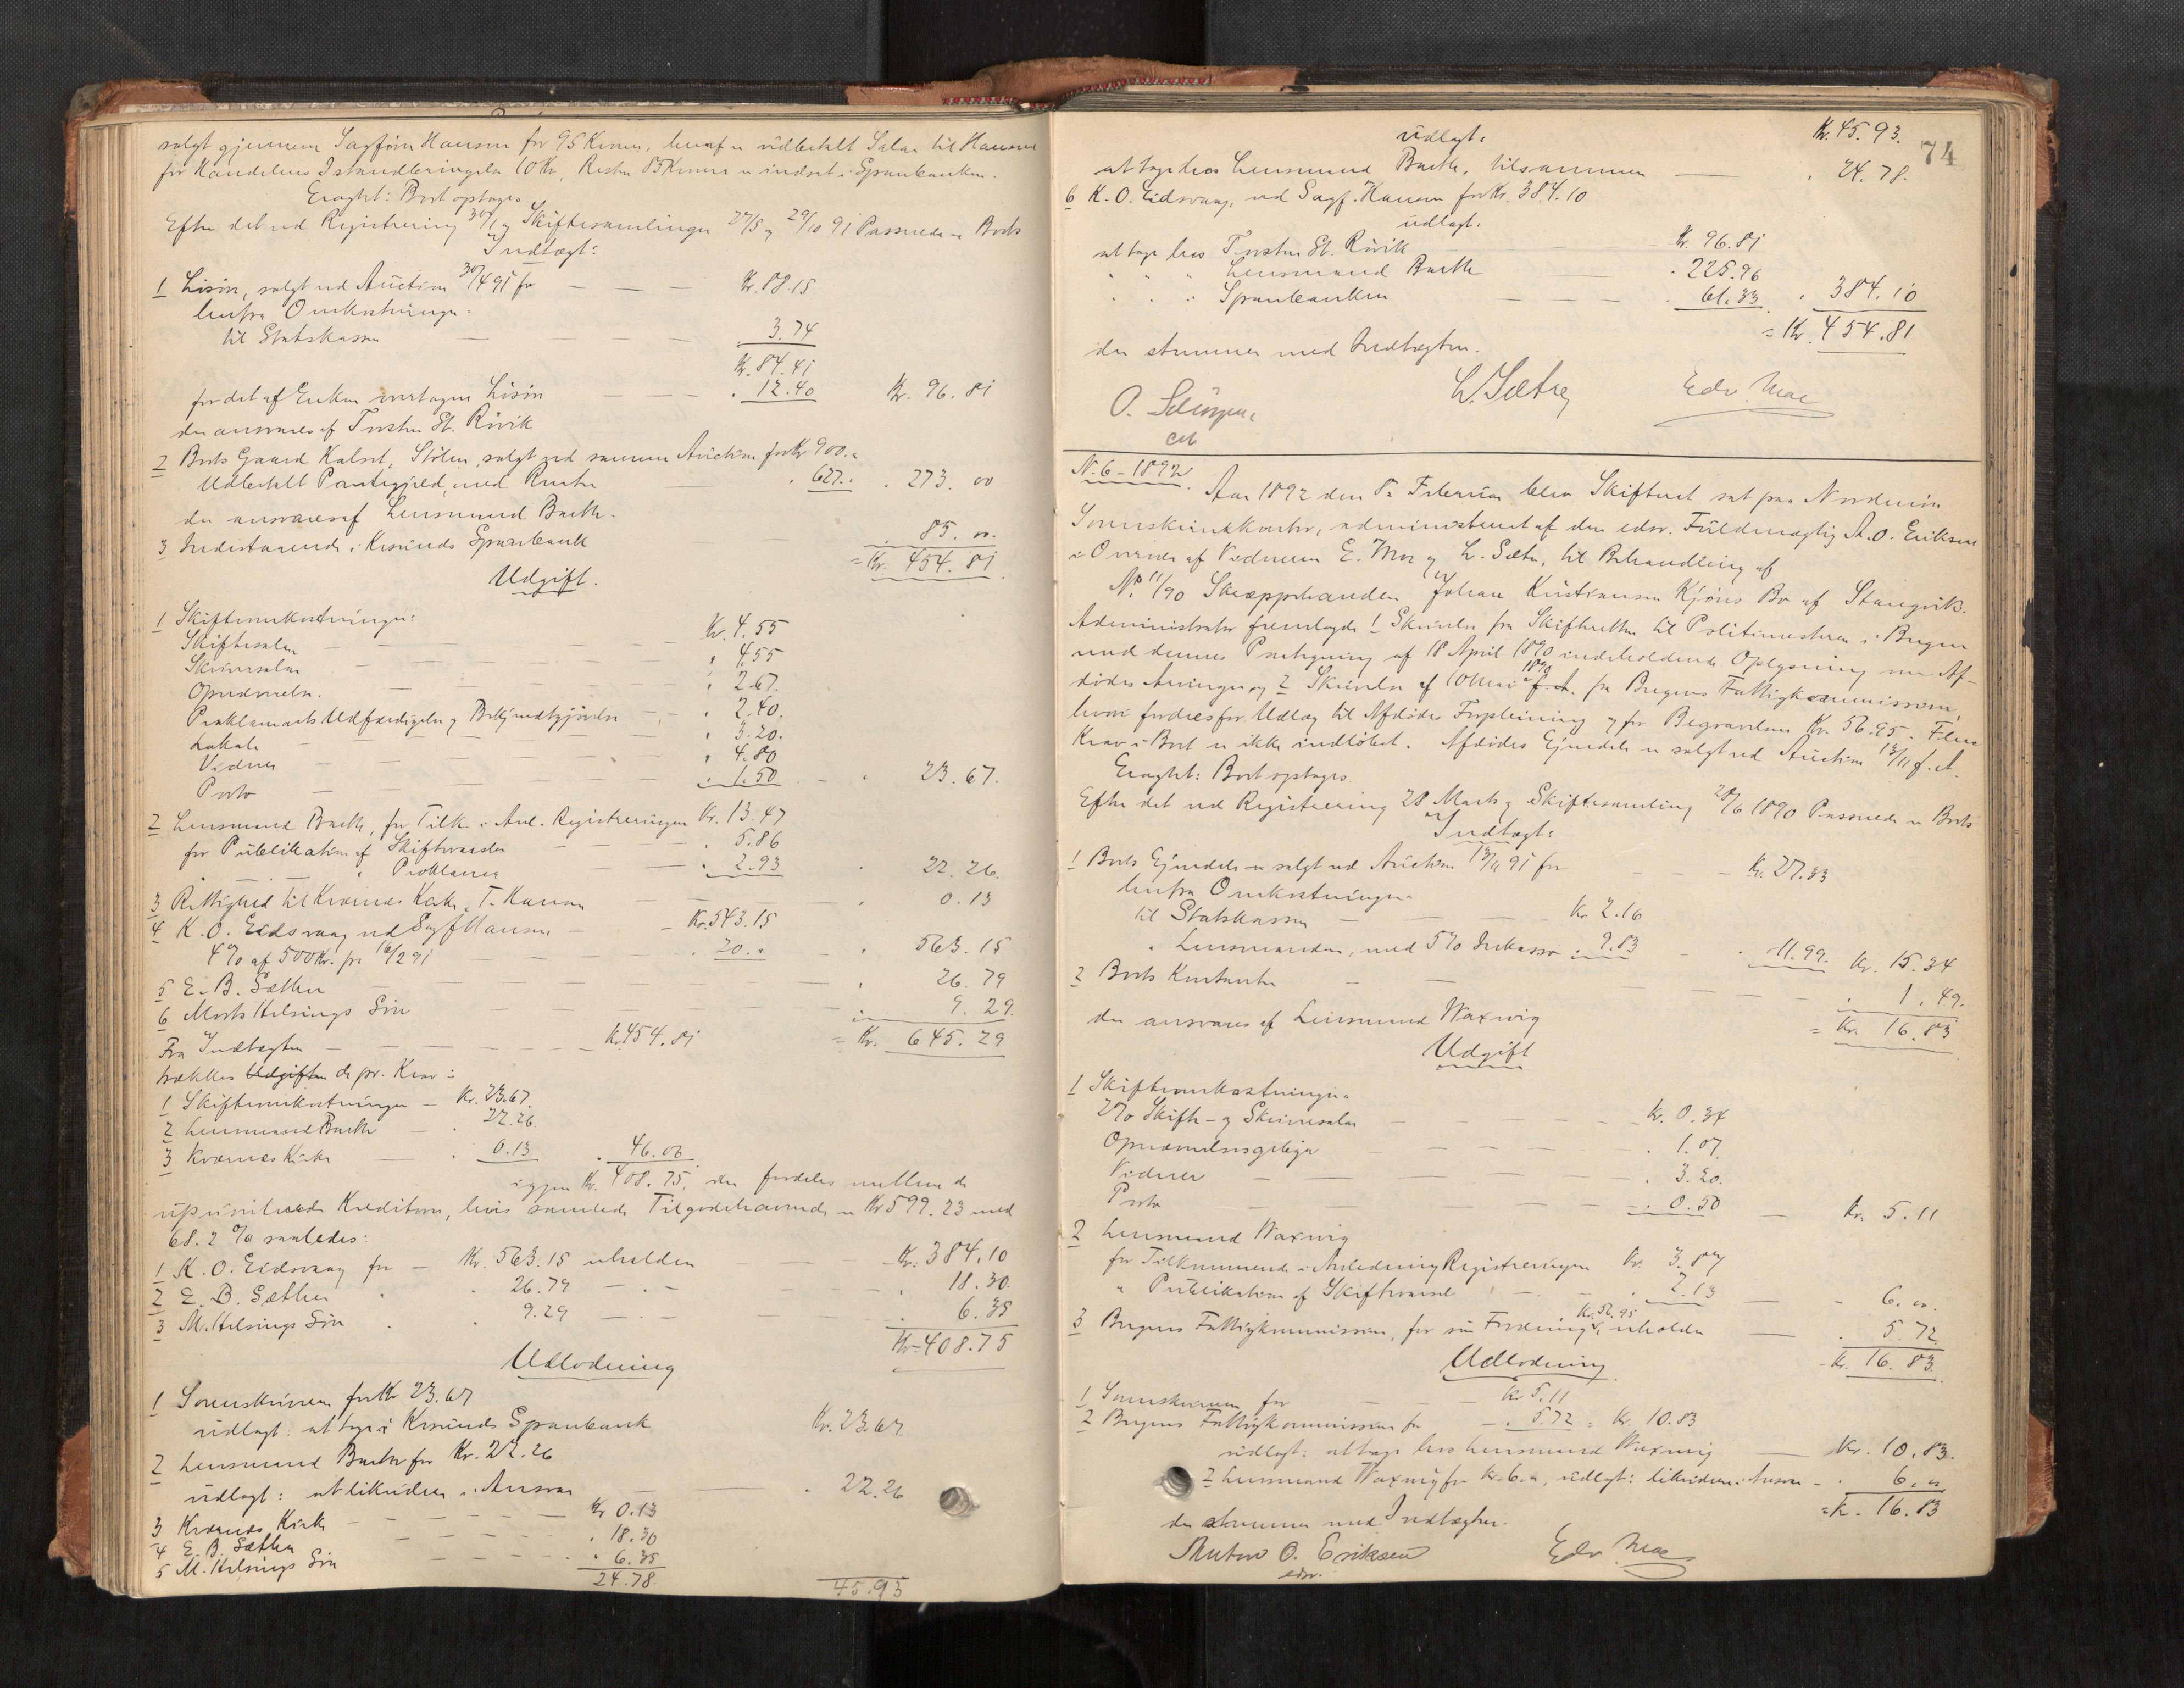 solgt gjennem Sagfører Hansen for 95 Kroner, heraf er udbetalt Salær til Hansen
for Handelens Istandbringelse 10 Kr, Resten 85 Kroner er indsat i Sparebanken.
Eragtet: Boet optages.
Efter det ved Registrering 30/1 og Skiftesamlinger 27/5 og 29/10 91 Passerede er Boets
Indtægt:
1 Løsøre, solgt ved Auction 30/4 91 for — — — Kr. 88.15
herfra Omkostninger:
til Statskassen — — 3.74
Kr. 84.41
for det af Enken overtagne Løsøre — — — . 12.40 Kr. 96.81
der ansvares af Torsten St. Rövik
2 Boets Gaard Kalset, Stölen, solgt ved samme Auction for Kr 900.
Udbetalt Pantegjeld, med Renter — . 627.. . 273. 00
der ansvares af Lensmand Barth.
3 Indestaaende i Krsunds Sparebank — . 85. 00.
= Kr. 454. 81
Udgift.
1 Skifteomkostninger:
Skiftesalær — — Kr. 4.55
Skriversalær — — . 4.55
Opnævnelse. — — . 2.67.
Proklamaets Udfærdigelse og Bekjendtgjørelse — . 2.40.
Lokale — — . 3.20.
Vidner — — . 4.80
Porto — — . 1.50 — . 23.67.
2 Lensmand Barth, for Tilk. i Anl. Registreringen Kr. 13.47
for Publikation af Skiftevarsler — . 5.86
" Proklama — . 2.93 . 22.26.
3 Rettighed til Kvernæs Kirke, T. Hansen — . 0.13
4 K. O. Eidsvaag ved Sagf Hansen — Kr. 543.15
4 % af 500 Kr. fra 16/2 91 — . 20.. — . 563.15
5 E. B. Sæther — — . 26.79
6 Morts Helsings Søn — — . 9.29.
= Kr. 645.29
Fra Indtægten — — Kr. 454.81
trækkes Udgiften de pr. Krav:
1 Skifteomkostninger — Kr. 23.67.
2 Lensmand Barth — . 22.26.
3 Kvernæs Kirke — . 0.13 . 46.06
igjen Kr. 408.75, der fordeles mellem de
upriviterede Kreditorer, hvis samlede Tilgodehavende er Kr 599.23 med
68.2 % saaledes:
1 K. O. Eidsvaag for — Kr. 563.15 erholder — Kr. 384.10
2 E. B. Sæther . . 26.79 — . — . 18.30.
3 M. Helsings Søn . . 9.29 — . — . 6.35
Kr. 408.75
Udlodning
1 Sorenskriveren for Kr 23.67
udlagt: at tage i Krsunds Sparebank Kr. 23.67.
2 Lensmand Barth for Kr. 22.26
udlagt: at likvidere i Ansvar — . 22.26
3 Kvernæs Kirke — — Kr 0.13
4 E. B. Sæther — — . 18.30
5 M. Helsings Søn — — . 6.35
24.78. 45.93
74
udlagt: Kr. 45.93.
at tage hos Lensmand Barth, tilsammen — . 24.78.
6 K. O. Eidsvaag, ved Sagf. Hansen for Kr. 384.10
udlagt:
at tage hos Torsten St. Rövik — Kr. 96.81
" " " Lensmand Barth — . 225.96
" " " Sparebanken — . 61.33. . 384.10
= Kr. 454.81
der stemmer med Indtægten.
L. Sætre Edv. Moe
N. 6 - 1892.
Aar 1892 den 8. Februar blev Skifteret sat paa Nordmøre
Sorenskriverkontor, administreret af den edsv. Fuldmægtig A. O. Eriksen
i Overvær af Vidnerne E. Moe og L. Sætre, til Behandling af
No 11/90 Skræpphandler Johan Kristiansen Kjöns Bo af Stangvik.
Administrator fremlagde 1 Skrivelse fra Skifteretten til Politimesteren i Bergen
med dennes Paategning af 18 April 1890 indeholdende Oplysning om Af-
dødes Arvinger og 2 Skrivelse af 10 Mai 1890 f. A. fra Bergens Fattigkommission,
hvori fordres for Udlæg til Afdødes Forpleining og for Begravelsen Kr. 56.95. Flere
Krav i Boet er ikke indløbet. Afdødes Ejendele er solgt ved Auction 13/11 f. A.
Eragtet: Boet optages.
Efter det ved Registrering 28 Marts og Skiftesamling 28/6 1890 Passerede er Boets
Indtægt:
1 Boets Ejendele er solgt ved Auction 13/11 91 for — — Kr. 27.33
herfra Omkostninger:
til Statskassen — — Kr 2.16
" Lensmanden, med 5 % Inkasso . 9.83 — . 11.99. Kr. 15.34
2 Boets Kontanter — — . 1.49.
der ansvares af Lensmand Waxvig = Kr. 16.83
Udgift
1 Skifteomkostninger:
2 % Skifte- og Skriversalær — — Kr. 0.34
Opnævnelsesgebyr — — . 1.07.
Vidner — — . 3.20.
Porto — — . 0.50 — Kr. 5.11
2 Lensmand Waxvig
for Tilkommende i Anledning Registreringen Kr. 3.87
" Publikation af Skiftevarsel — . 2.13 — . 6. 00.
3 Bergens Fattigkommission, for sin Fordring Kr. 56.95, erholder — . 5.72
Kr. 16.83.
Udlodning
1 Sorenskriveren for — — Kr 5.11
2 Bergens Fattigkommission for — . 5.72 = Kr. 10.83
udlagt: at tage hos Lensmand Waxvig — Kr. 10.83.
2 Lensmand Waxvig for Kr. 6.00, udlagt: likvidere i Ansvar . 6.00
= Kr. 16.83
der stemmer med Indtægten.
Anton O. Eriksen Edv. Moe
edsv.